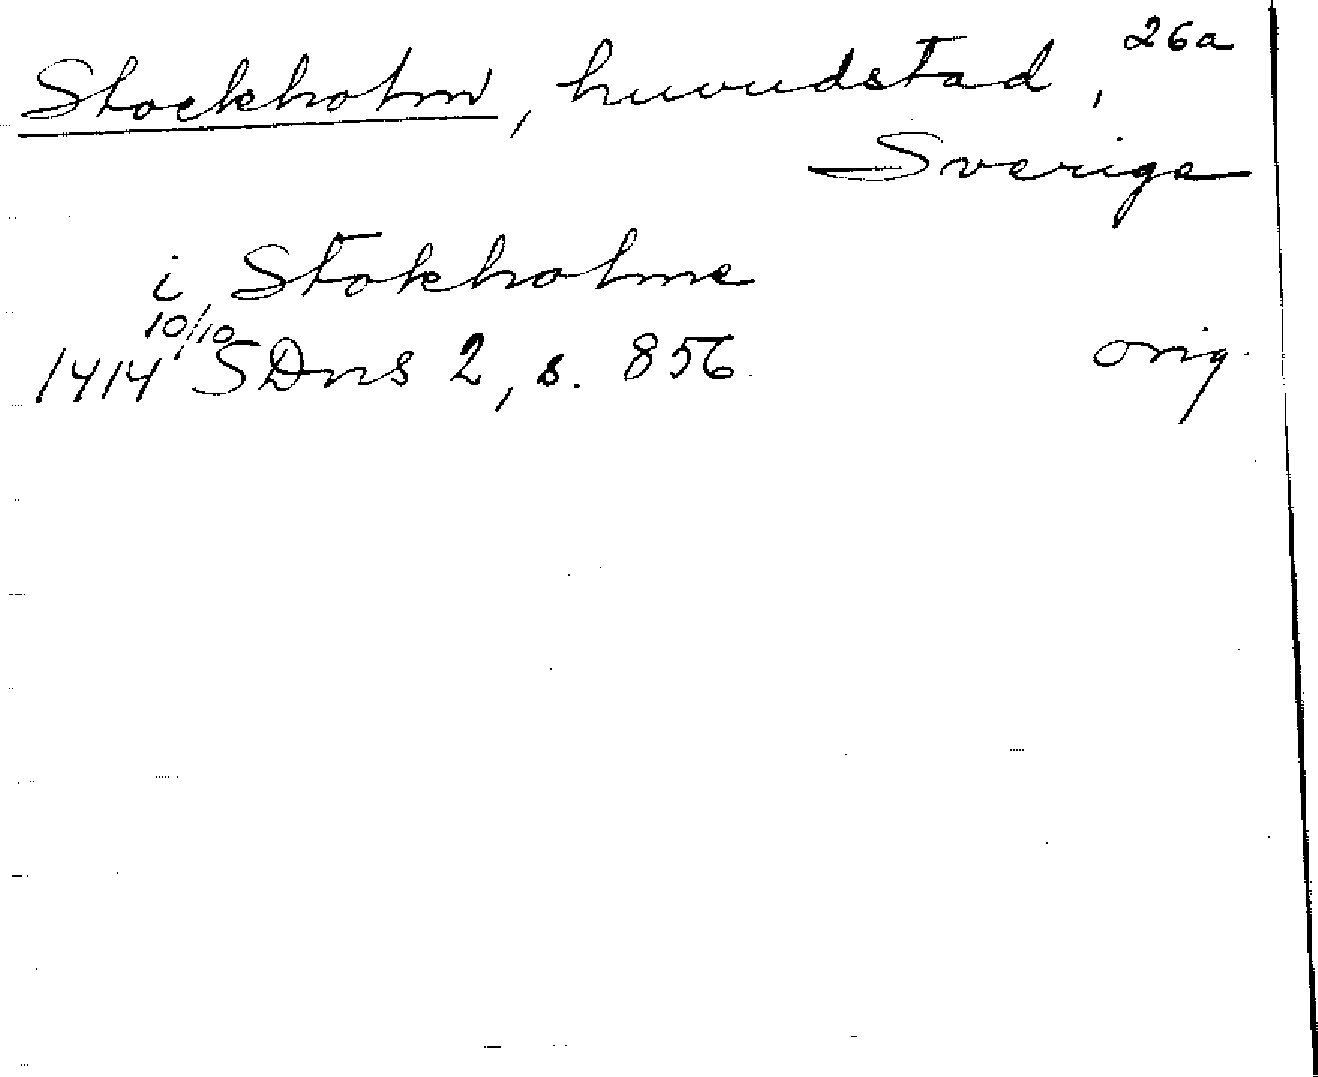 26a
Stockholm, huvudstad,
Sverige
i Stokholme
10/10
1414 SDns 2, s. 856 orig.